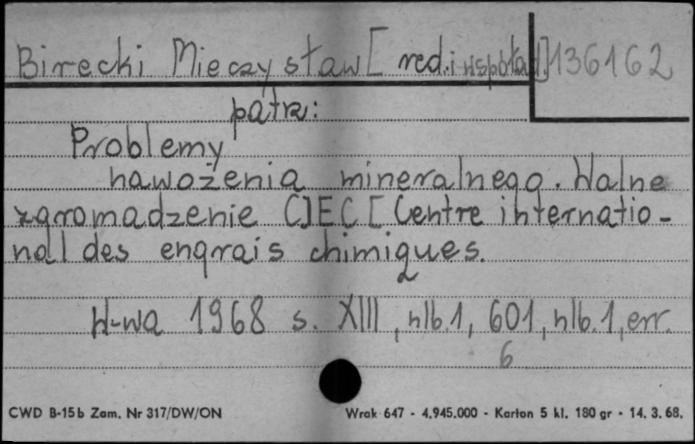 Birecki Mieczysław [red. i współ.] 136162
patrz:
Problemy
nawożenia mineralnego. Walne
zgromadzenie CIEC [Centre internatio-
nal des engrais chimiques.
W-wa 1968 s. XIII, nlb.1, 601, nlb.1, err.
6
CWD B-15b Zam. Nr 317/DW/ON Wrak 647 - 4.945.000 - Karton 5 kl. 180 gr - 14. 3. 68.